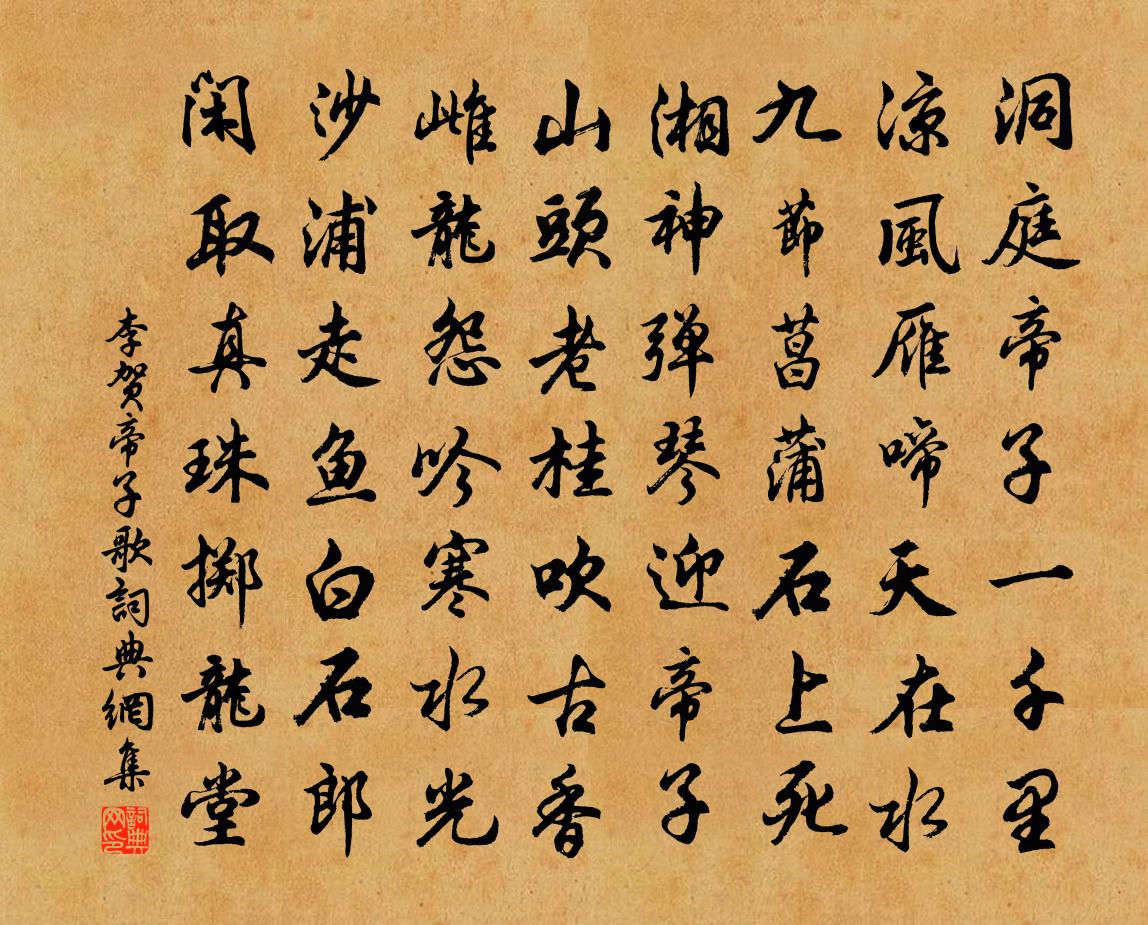 洞庭帝子一千里
涼風雁啼天在水
九節菖蒲石上死
湘神弹琴迎帝子
山頭老桂吹古香
雌龍怨吟寒水光
沙浦走鱼白石郎
闲取真珠掷龍堂
李贺帝子歌詞典網集
詞典网印